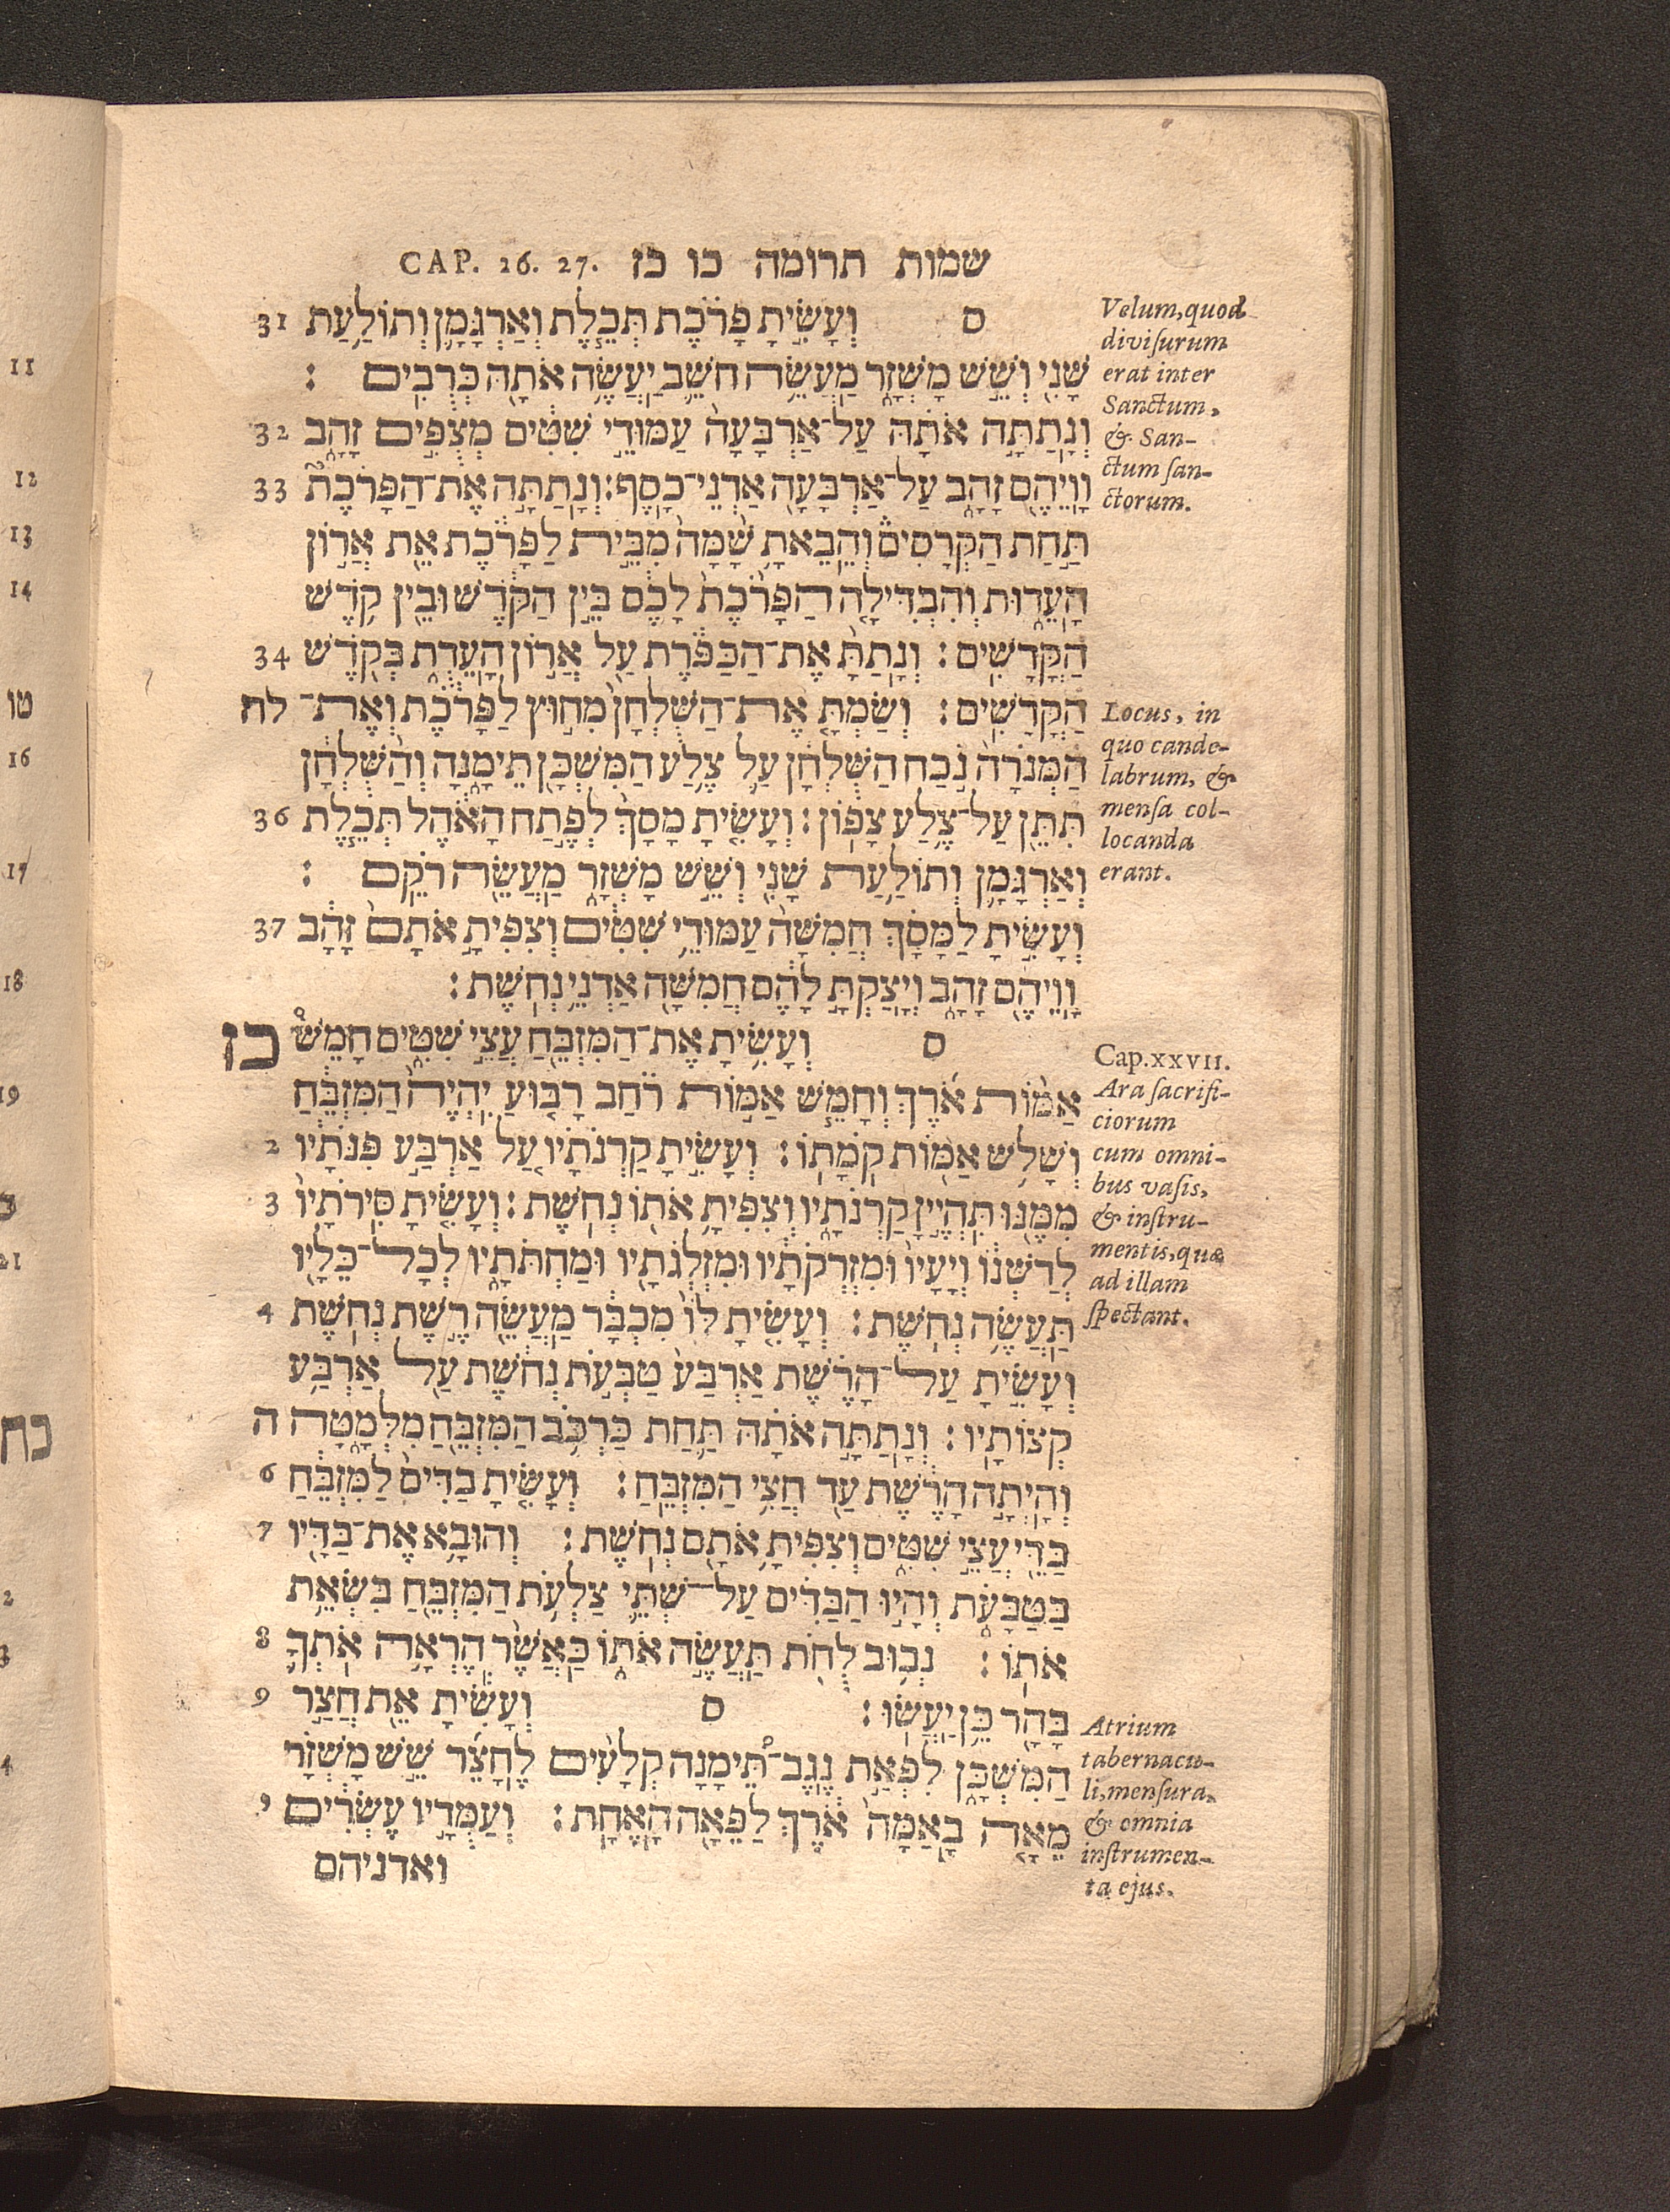 שמות תרומה כו כז CAP. 26. 27.
ס וְעָשִׂ֣יתָ פָרֹ֗כֶת תְּכֵ֧לֶת וְאַרְגָּמָ֛ן וְתוֹלַ֥עַת 31
שָׁנִ֖י וְשֵׁ֣שׁ מָשְׁזָ֑ר מַעֲשֵׂ֥ה חֹשֵׁ֛ב יַעֲשֶׂ֥ה אֹתָ֖הּ כְּרֻבִֽים :
וְנָתַתָּ֣ה אֹתָ֗הּ עַל־אַרְבָּעָה֙ עַמּוּדֵ֣י שִׁטִּ֔ים מְצֻפִּ֣ים זָהָ֔ב 32
וָוֵיהֶ֖ם זָהָ֑ב עַל־אַרְבָּעָ֖ה אַדְנֵי־כָֽסֶף : וְנָתַתָּ֣ה אֶת־הַפָּרֹכֶת֮ 33
תַּ֣חַת הַקְּרָסִים֒ וְהֵבֵאתָ֥ שָׁ֙מָּה֙ מִבֵּ֣ית לַפָּרֹ֔כֶת אֵ֖ת אֲר֣וֹן
הָעֵד֑וּת וְהִבְדִּילָ֤ה הַפָּרֹ֙כֶת֙ לָכֶ֔ם בֵּ֣ין הַקֹּ֔דֶשׁ וּבֵ֖ין קֹ֥דֶשׁ
הַקֳּדָשִֽׁים : וְנָתַתָּ֙ אֶת־הַכַּפֹּ֔רֶת עַ֖ל אֲר֣וֹן הָעֵדֻ֑ת בְּקֹ֖דֶשׁ 34
הַקֳּדָשִֽׁים : וְשַׂמְתָּ֤ אֶת־הַשֻּׁלְחָן֙ מִח֣וּץ לַפָּרֹ֔כֶת וְאֶת־ לה
הַמְּנֹרָה֙ נֹ֣כַח הַשֻּׁלְחָ֔ן עַ֛ל צֶ֥לַע הַמִּשְׁכָּ֖ן תֵּימָ֑נָה וְהַ֨שֻּׁלְחָ֔ן
תִּתֵּ֖ן עַל־צֶ֥לַע צָפֽוֹן : וְעָשִׂ֤יתָ מָסָךְ֙ לְפֶ֣תַח הָאֹ֔הֶל תְּכֵ֧לֶת 36
וְאַרְגָּמָ֛ן וְתוֹלַ֥עַת שָׁנִ֖י וְשֵׁ֣שׁ מָשְׁזָ֑ר מַעֲשֵׂ֖ה רֹקֵֽם :
וְעָשִׂ֣יתָ לַמָּסָ֗ךְ חֲמִשָּׁה֙ עַמּוּדֵ֣י שִׁטִּ֔ים וְצִפִּיתָ֤ אֹתָם֙ זָהָ֔ב 37
וָוֵיהֶ֖ם זָהָ֑ב וְיָצַקְתָּ֣ לָהֶ֔ם חֲמִשָּׁ֖ה אַדְנֵ֥י נְחֹֽשֶׁת :
ס וְעָשִׂ֥יתָ אֶת־הַמִּזְבֵּ֖חַ עֲצֵ֣י שִׁטִּ֑ים חָמֵשׁ֩ כז
אַמּ֨וֹת אֹ֜רֶךְ וְחָמֵ֧שׁ אַמּ֣וֹת רֹ֗חַב רָב֤וּעַ יִהְיֶה֙ הַמִּזְבֵּ֔חַ
וְשָׁלֹ֥שׁ אַמּ֖וֹת קֹמָתֽוֹ : וְעָשִׂ֣יתָ קַרְנֹתָ֗יו עַ֚ל אַרְבַּ֣ע פִּנֹּתָ֔יו 2
מִמֶּ֖נּוּ תִּהְיֶ֣יןָ קַרְנֹתָ֑יו וְצִפִּיתָ֥ אֹת֖וֹ נְחֹֽשֶׁת : וְעָשִׂ֤יתָ סִּֽירֹתָיו֙ 3
לְדַשְּׁנ֔וֹ וְיָעָיו֙ וּמִזְרְקֹתָ֔יו וּמִזְלְגֹתָ֖יו וּמַחְתֹּתָ֑יו לְכָל־כֵּלָ֖יו
תַּעֲשֶׂ֥ה נְחֹֽשֶׁת : וְעָשִׂ֤יתָ לּוֹ֙ מִכְבָּ֔ר מַעֲשֵׂ֖ה רֶ֣שֶׁת נְחֹ֑שֶׁת 4
וְעָשִׂ֣יתָ עַל־הָרֶ֗שֶׁת אַרְבַּע֙ טַבְּעֹ֣ת נְחֹ֔שֶׁת עַ֖ל אַרְבַּ֥ע
קְצוֹתָֽיו : וְנָתַתָּ֣ה אֹתָ֗הּ תַּ֛חַת כַּרְכֹּ֥ב הַמִּזְבֵּ֖חַ מִלְּמָ֑טָּה ה
וְהָיְתָ֣ה הָרֶ֔שֶׁת עַ֖ד חֲצִ֥י הַמִּזְבֵּֽחַ : וְעָשִׂ֤יתָ בַדִּים֙ לַמִּזְבֵּ֔חַ 6
בַּדֵּ֖י עֲצֵ֣י שִׁטִּ֑ים וְצִפִּיתָ֥ אֹתָ֖ם נְחֹֽשֶׁת : וְהוּבָ֥א אֶת־בַּדָּ֖יו 7
בַּטַּבָּעֹ֑ת וְהָי֣וּ הַבַּדִּ֗ים עַל־שְׁתֵּ֛י צַלְעֹ֥ת הַמִּזְבֵּ֖חַ בִּשְׂאֵ֥ת
אֹתֽוֹ : נְב֥וּב לֻחֹ֖ת תַּעֲשֶׂ֣ה אֹת֑וֹ כַּאֲשֶׁ֨ר הֶרְאָ֥ה אֹתְךָ֛ 8
בָּהָ֖ר כֵּ֥ן יַעֲשֽׂוּ : ס וְעָשִׂ֕יתָ אֵ֖ת חֲצַ֣ר 9
הַמִּשְׁכָּ֑ן לִפְאַ֣ת נֶֽגֶב־תֵּ֠ימָנָה קְלָעִ֨ים לֶחָצֵ֜ר שֵׁ֣שׁ מָשְׁזָ֗ר
מֵאָ֤ה בָֽאַמָּה֙ אֹ֔רֶךְ לַפֵּאָ֖ה הָאֶחָֽת : וְעַמֻּדָ֣יו עֶשְׂרִ֔ים י
ואדניהם
Velum, quod
divisurum
erat inter
Sanctum,
& San-
ctum san-
ctorum.
Locus, in
quo cande-
labrum, &
mensa col-
locanda
erant.
Cap. XXVII.
Ara sacrifi-
ciorum
cum omni-
bus vasis,
& instru-
mentis, quæ
ad illam
spectant.
Atrium
tabernacu-
li, mensura,
& omnia
instrumen-
ta ejus.
11
12
13
14
טו
16
17
18
19
21
כח
2
3
4